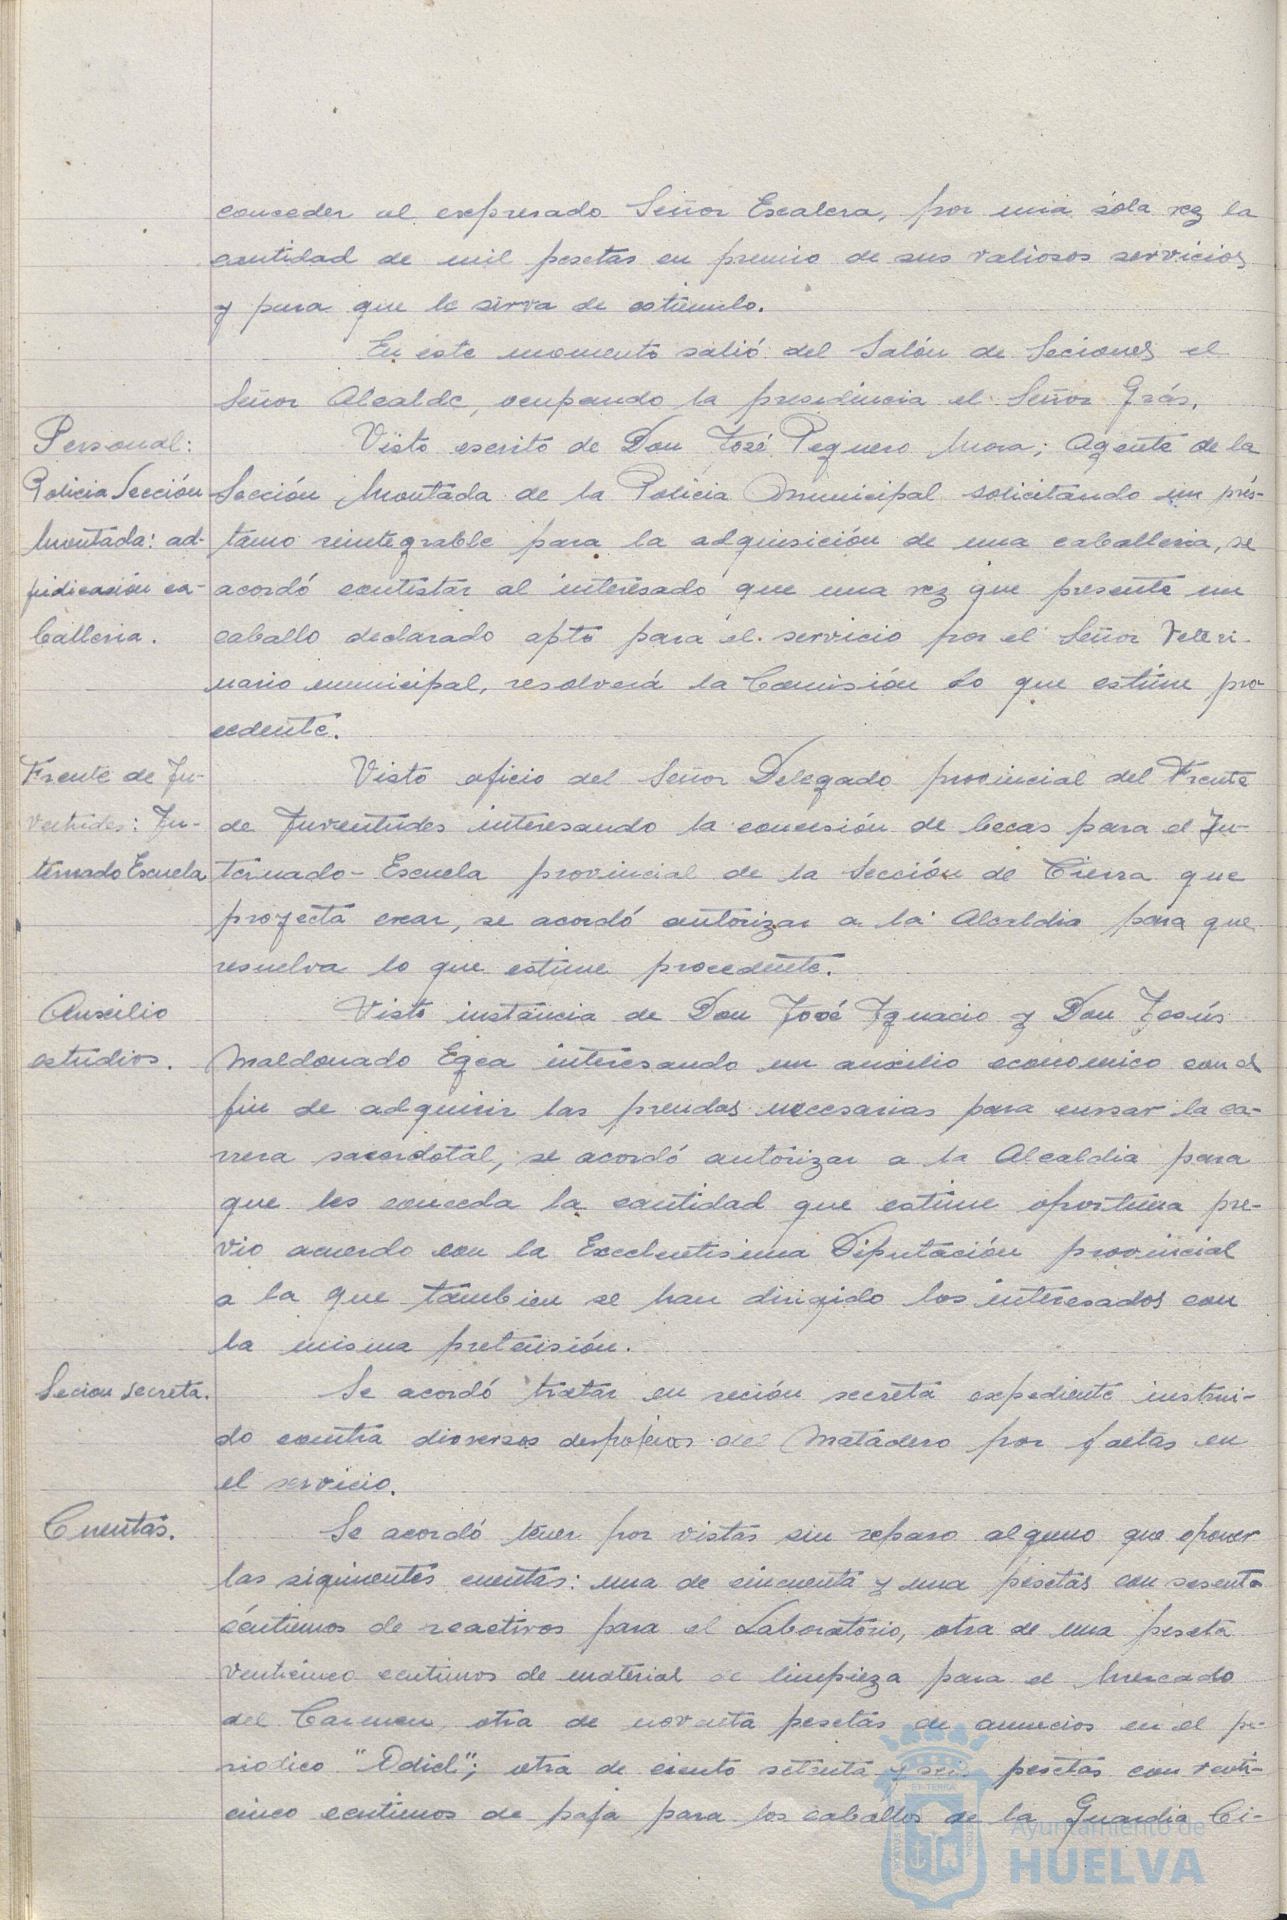 conceder al expresado Señor Escalera, por una sóla vez la
cantidad de mil pesetas en premio de sus valiosos servicios
y para que le sirva de estímulo.
En este momento salió del Salón de Seciones el
Señor Alcalde, ocupando la presidencia el Señor Grás.
Personal:
Policia Sección
Montada: ad-
judicasión ca-
balleria.
Visto escrito de Don José Peguero Mora; Agente de la
Sección Montada de la Policia Municipal solicitando un prés-
tamo reintegrable para la adquisición de una caballeria, se
acordó contestar al interesado que una vez que presente un
caballo declarado apto para el servicio por el Señor Veteri-
nario municipal, resolverá la Comisión lo que estime pro-
cedente.
Frente de Ju-
ventudes: In-
ternado Escuela
Visto oficio del Señor Delegado provincial del Frente
de Juventudes interesando la concesión de becas para el In-
ternado-Escuela provincial de la Sección de Tierra que
proyecta crear, se acordó autorizar a la Alcaldia para que
resuelva lo que estime procedente.
Auxilio
estudios.
Visto instancia de Don José Ignacio y Don Jesús
Maldonado Egea interesando un auxilio economico con el
fin de adquirir las prendas necesarias para cursar la ca-
rrera sacerdotal, se acordó autorizar a la Alcaldia para
que les conceda la cantidad que estime oportuna pre-
vio acuerdo con la Excelentisima Diputación provincial
a la que tambien se han dirigido los interesados con
la misma pretensión.
Secion secreta.
Se acordó tratar en seción secreta expediente instrui-
do contra diversos despojeros del Matadero por faltas en
el servicio.
Cuentas.
Se acordó tener por vistas sin reparo alguno que oponer
las siguientes cuentas: una de cincuenta y una pesetas con sesenta
céntimos de reactivos para el Laboratorio, otra de una peseta
venticinco centimos de material de limpieza para el Mercado
del Carmen, otra de noventa pesetas de anuncios en el pe-
riodico "Odiel"; otra de ciento setenta y seis pesetas con venti-
cinco centimos de paja para los caballos de la Guardia Ci-
Ayuntamiento de
HUELVA